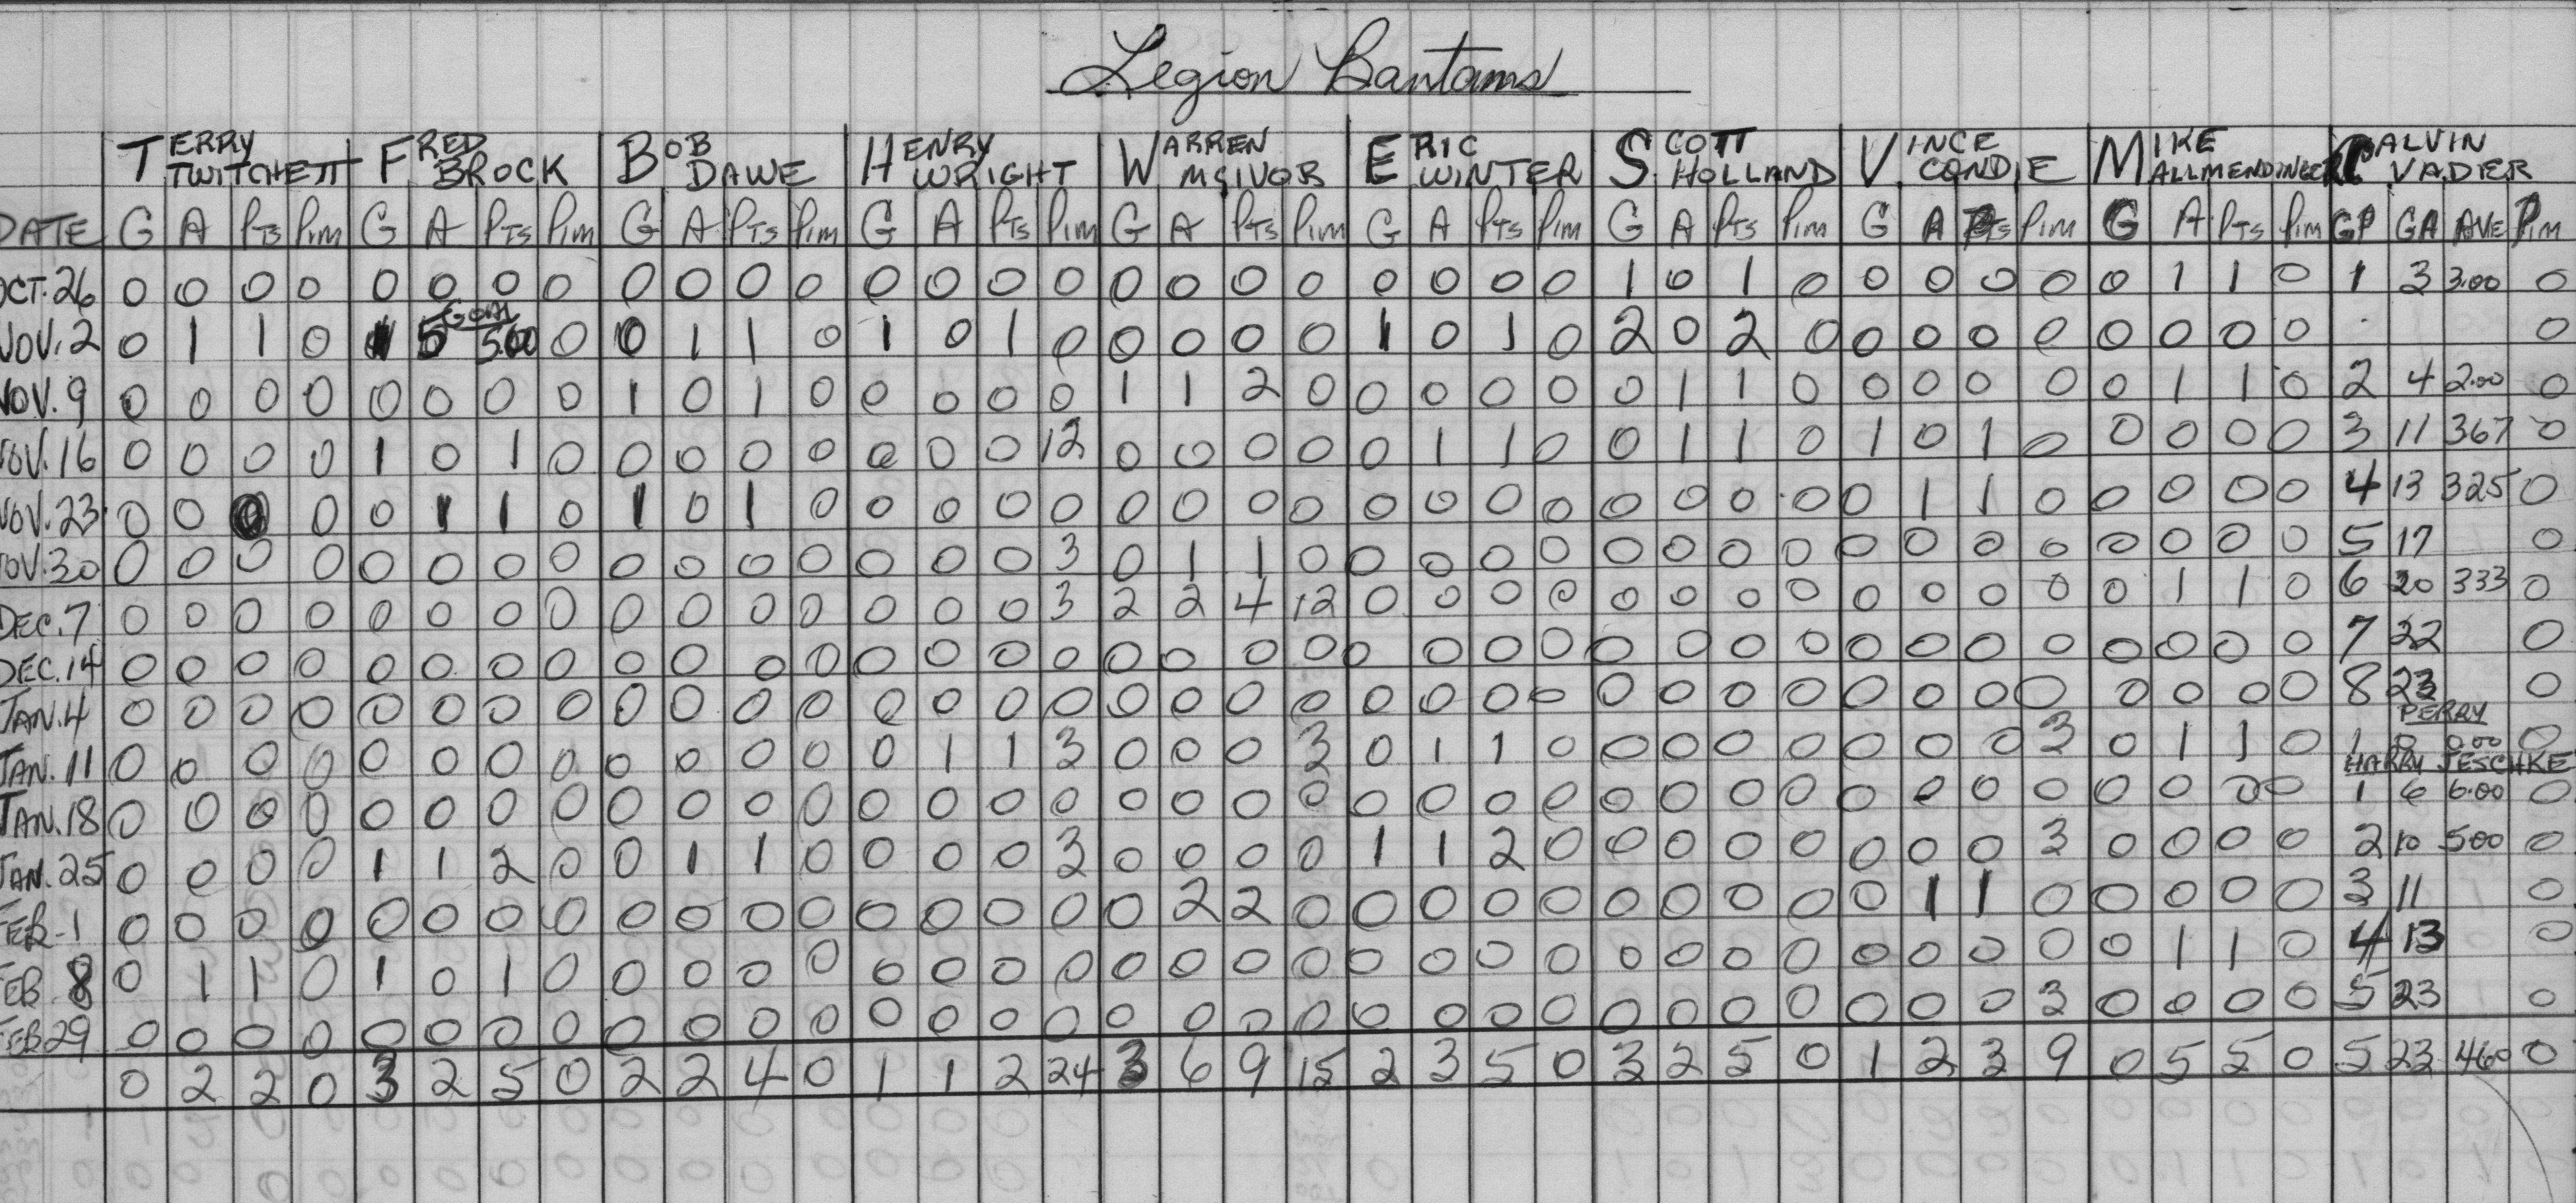 Legion Bantams
TERRY TWITCHETT FRED BROCK BOB DAWE HENRY WRIGHT WARREN McIVOR ERIC WINTER SCOTT HOLLAND VINCE CONDIE MIKE ALLMENDINGER CALVIN VADER
DATE G A PTS PIM G A PTS PIM G A PTS PIM G A PTS PIM G A PTS PIM G A PTS PIM G A PTS PIM G A PTS PIM G A PTS PIM GP GA AVE PIM
OCT. 26 0 0 0 0 0 0 0 0 0 0 0 0 0 0 0 0 0 0 0 0 0 0 0 0 1 0 1 0 0 0 0 0 0 1 1 0 1 3 3.00 0
GOAL
NOV. 2 0 1 1 0 1 5 5.00 0 0 1 1 0 1 0 1 0 0 0 0 0 1 0 1 0 2 0 2 0 0 0 0 0 0 0 0 0 0
NOV. 9 0 0 0 0 0 0 0 0 1 0 1 0 0 0 0 0 1 1 2 0 0 0 0 0 0 1 1 0 0 0 0 0 0 1 1 0 2 4 2.00 0
NOV. 16 0 0 0 0 1 0 1 0 0 0 0 0 0 0 0 12 0 0 0 0 0 1 1 0 0 1 1 0 1 0 1 0 0 0 0 0 3 11 367 0
NOV. 23 0 0 0 0 0 1 1 0 1 0 1 0 0 0 0 0 0 0 0 0 0 0 0 0 0 0 0 0 0 1 1 0 0 0 0 0 4 13 325 0
NOV. 30 0 0 0 0 0 0 0 0 0 0 0 0 0 0 0 3 0 1 1 0 0 0 0 0 0 0 0 0 0 0 0 0 0 0 0 0 5 17 0
DEC. 7 0 0 0 0 0 0 0 0 0 0 0 0 0 0 0 3 2 2 4 12 0 0 0 0 0 0 0 0 0 0 0 0 0 1 1 0 6 20 333 0
DEC. 14 0 0 0 0 0 0 0 0 0 0 0 0 0 0 0 0 0 0 0 0 0 0 0 0 0 0 0 0 0 0 0 0 0 0 0 0 7 22 0
JAN. 4 0 0 0 0 0 0 0 0 0 0 0 0 0 0 0 0 0 0 0 0 0 0 0 0 0 0 0 0 0 0 0 0 0 0 0 0 8 23 0
PERRY
JAN. 11 0 0 0 0 0 0 0 0 0 0 0 0 0 1 1 3 0 0 0 3 0 1 1 0 0 0 0 0 0 0 0 3 0 1 1 0 1 0 0.00 0
HARRY JESCHKE
JAN. 18 0 0 0 0 0 0 0 0 0 0 0 0 0 0 0 0 0 0 0 0 0 0 0 0 0 0 0 0 0 0 0 0 0 0 0 0 1 6 6.00 0
JAN. 25 0 0 0 0 1 1 2 0 0 1 1 0 0 0 0 3 0 0 0 0 1 1 2 0 0 0 0 0 0 0 0 3 0 0 0 0 2 10 500 0
FEB-1 0 0 0 0 0 0 0 0 0 0 0 0 0 0 0 0 0 2 2 0 0 0 0 0 0 0 0 0 0 1 1 0 0 0 0 0 3 11 0
FEB 8 0 1 1 0 1 0 1 0 0 0 0 0 0 0 0 0 0 0 0 0 0 0 0 0 0 0 0 0 0 0 0 0 0 1 1 0 4 13 0
FEB 29 0 0 0 0 0 0 0 0 0 0 0 0 0 0 0 0 0 0 0 0 0 0 0 0 0 0 0 0 0 0 0 3 0 0 0 0 5 23 0
0 2 2 0 3 2 5 0 2 2 4 0 1 1 2 24 3 6 9 15 2 3 5 0 3 2 5 0 1 2 3 9 0 5 5 0 5 23 460 0